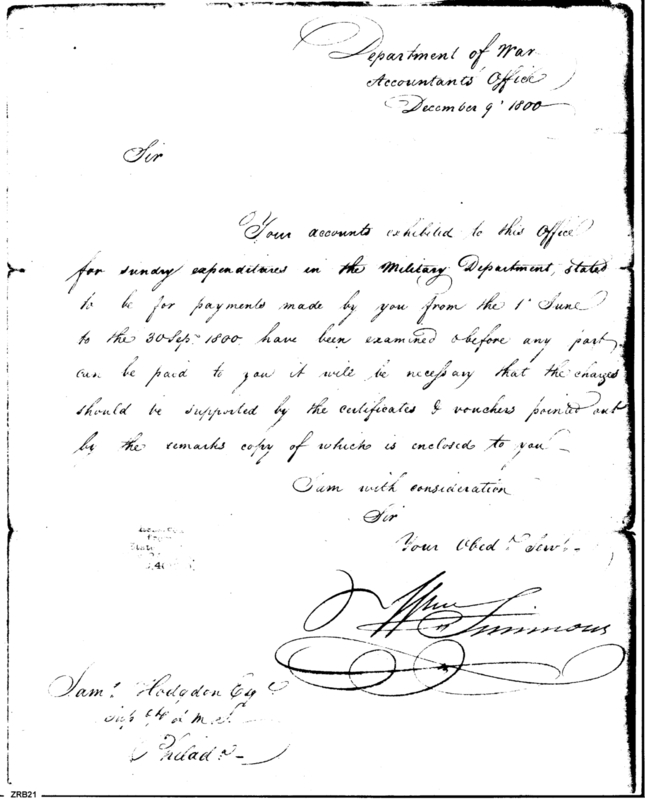 Department of War
Accountants' Office
December 9th 1800
Sir
Your accounts exhibited to this Office
for sundry expenditures in the Military Department, stated
to be for payments made by you from the 1st June
to the 30 Sept. 1800 have been examined & before any part
can be paid to you it will be necessary that the charges
should be supported by the certificates & vouchers pointed out
by the remarks copy of which is enclosed to you
I am with consideration
Sir
Your Obedt Servt
Wm Simmons
Saml. Hodgdon Esq
Philada
ZRB21